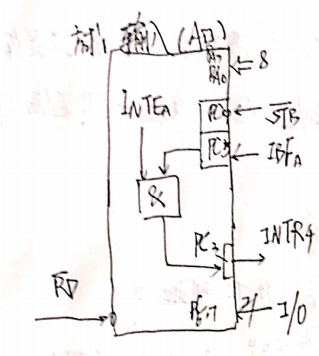 方式1 输入(A口)
PA7
PA0
8
INTEA
PC4
STB
PC5
IBFA
&
PC3
INTRA
RD
PC6.7
2
I/O